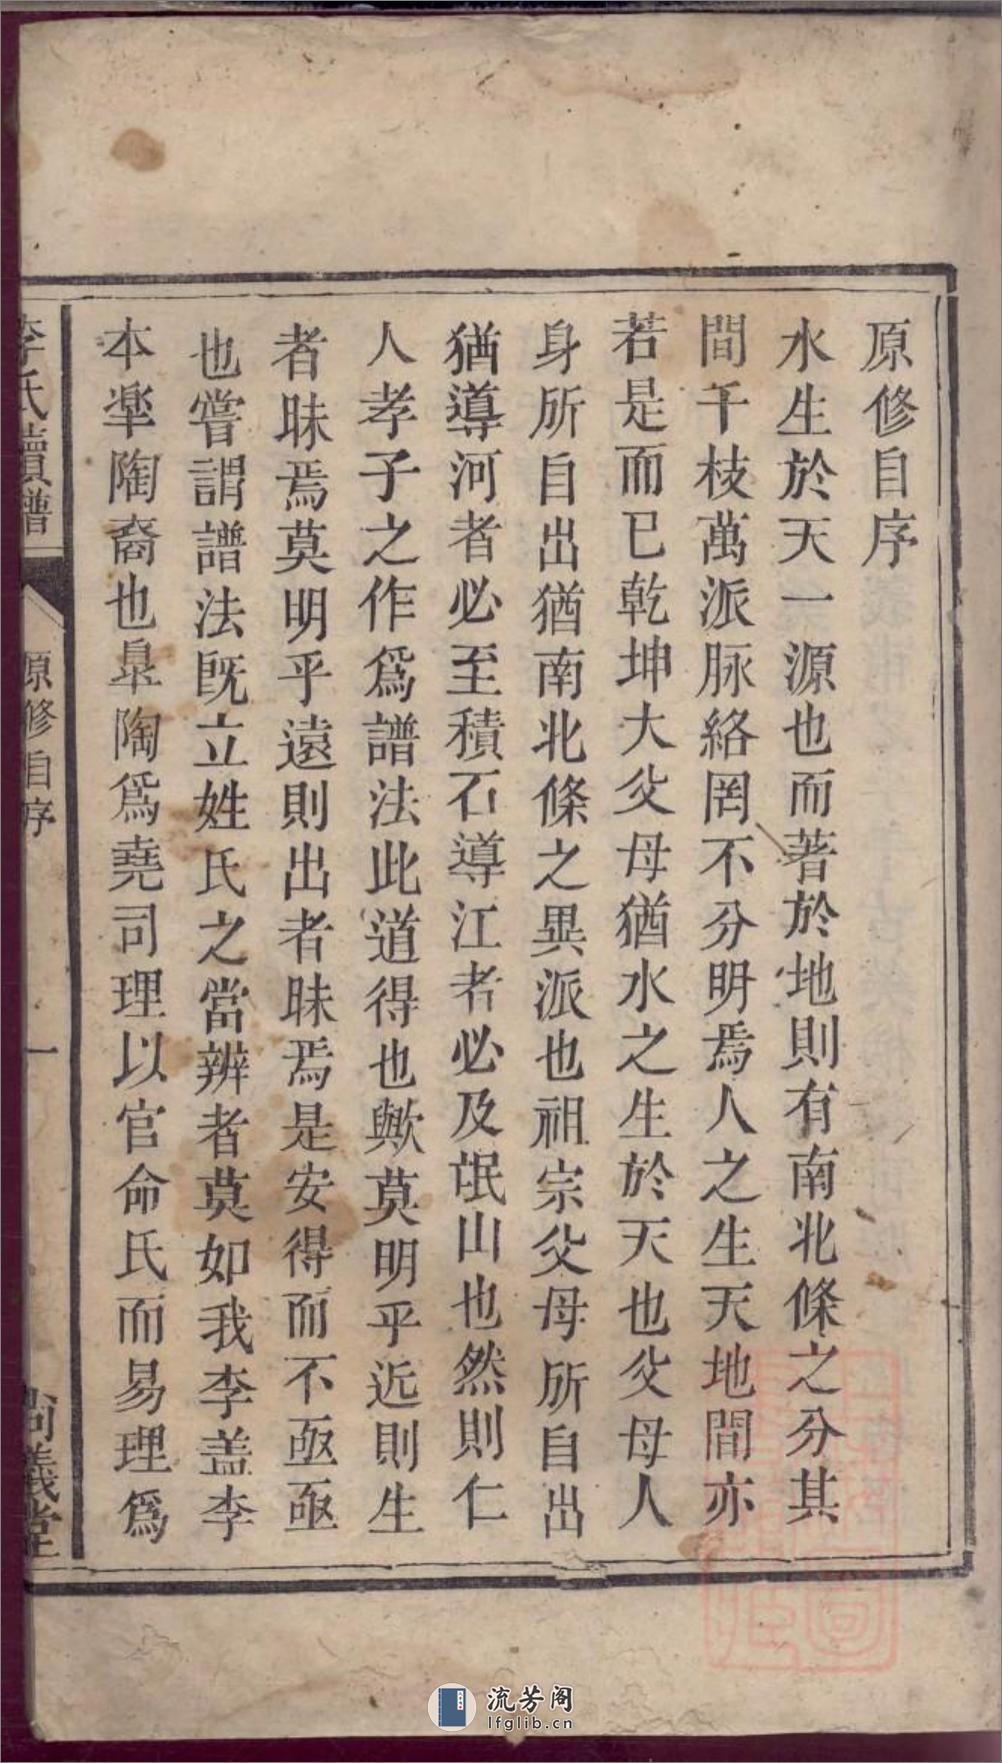 原修自序
水生於天一源也而著於地則有南北條之分其
間千枝萬派脉絡罔不分明焉人之生天地間亦
若是而已乾坤大父母猶水之生於天也父母人
身所自出猶南北條之異派也祖宗父母所自出
猶導河者必至積石導江者必及岷山也然則仁
人孝子之作爲譜法此道得也歟莫明乎近則生
者昧焉莫明乎遠則出者昧焉是安得而不亟亟
也嘗謂譜法旣立姓氏之當辨者莫如我李盖李
本臯陶裔也臯陶爲堯司理以官命氏而易理爲
李氏續譜
原修自序
一
尙義堂
流芳阁
lfglib.cn